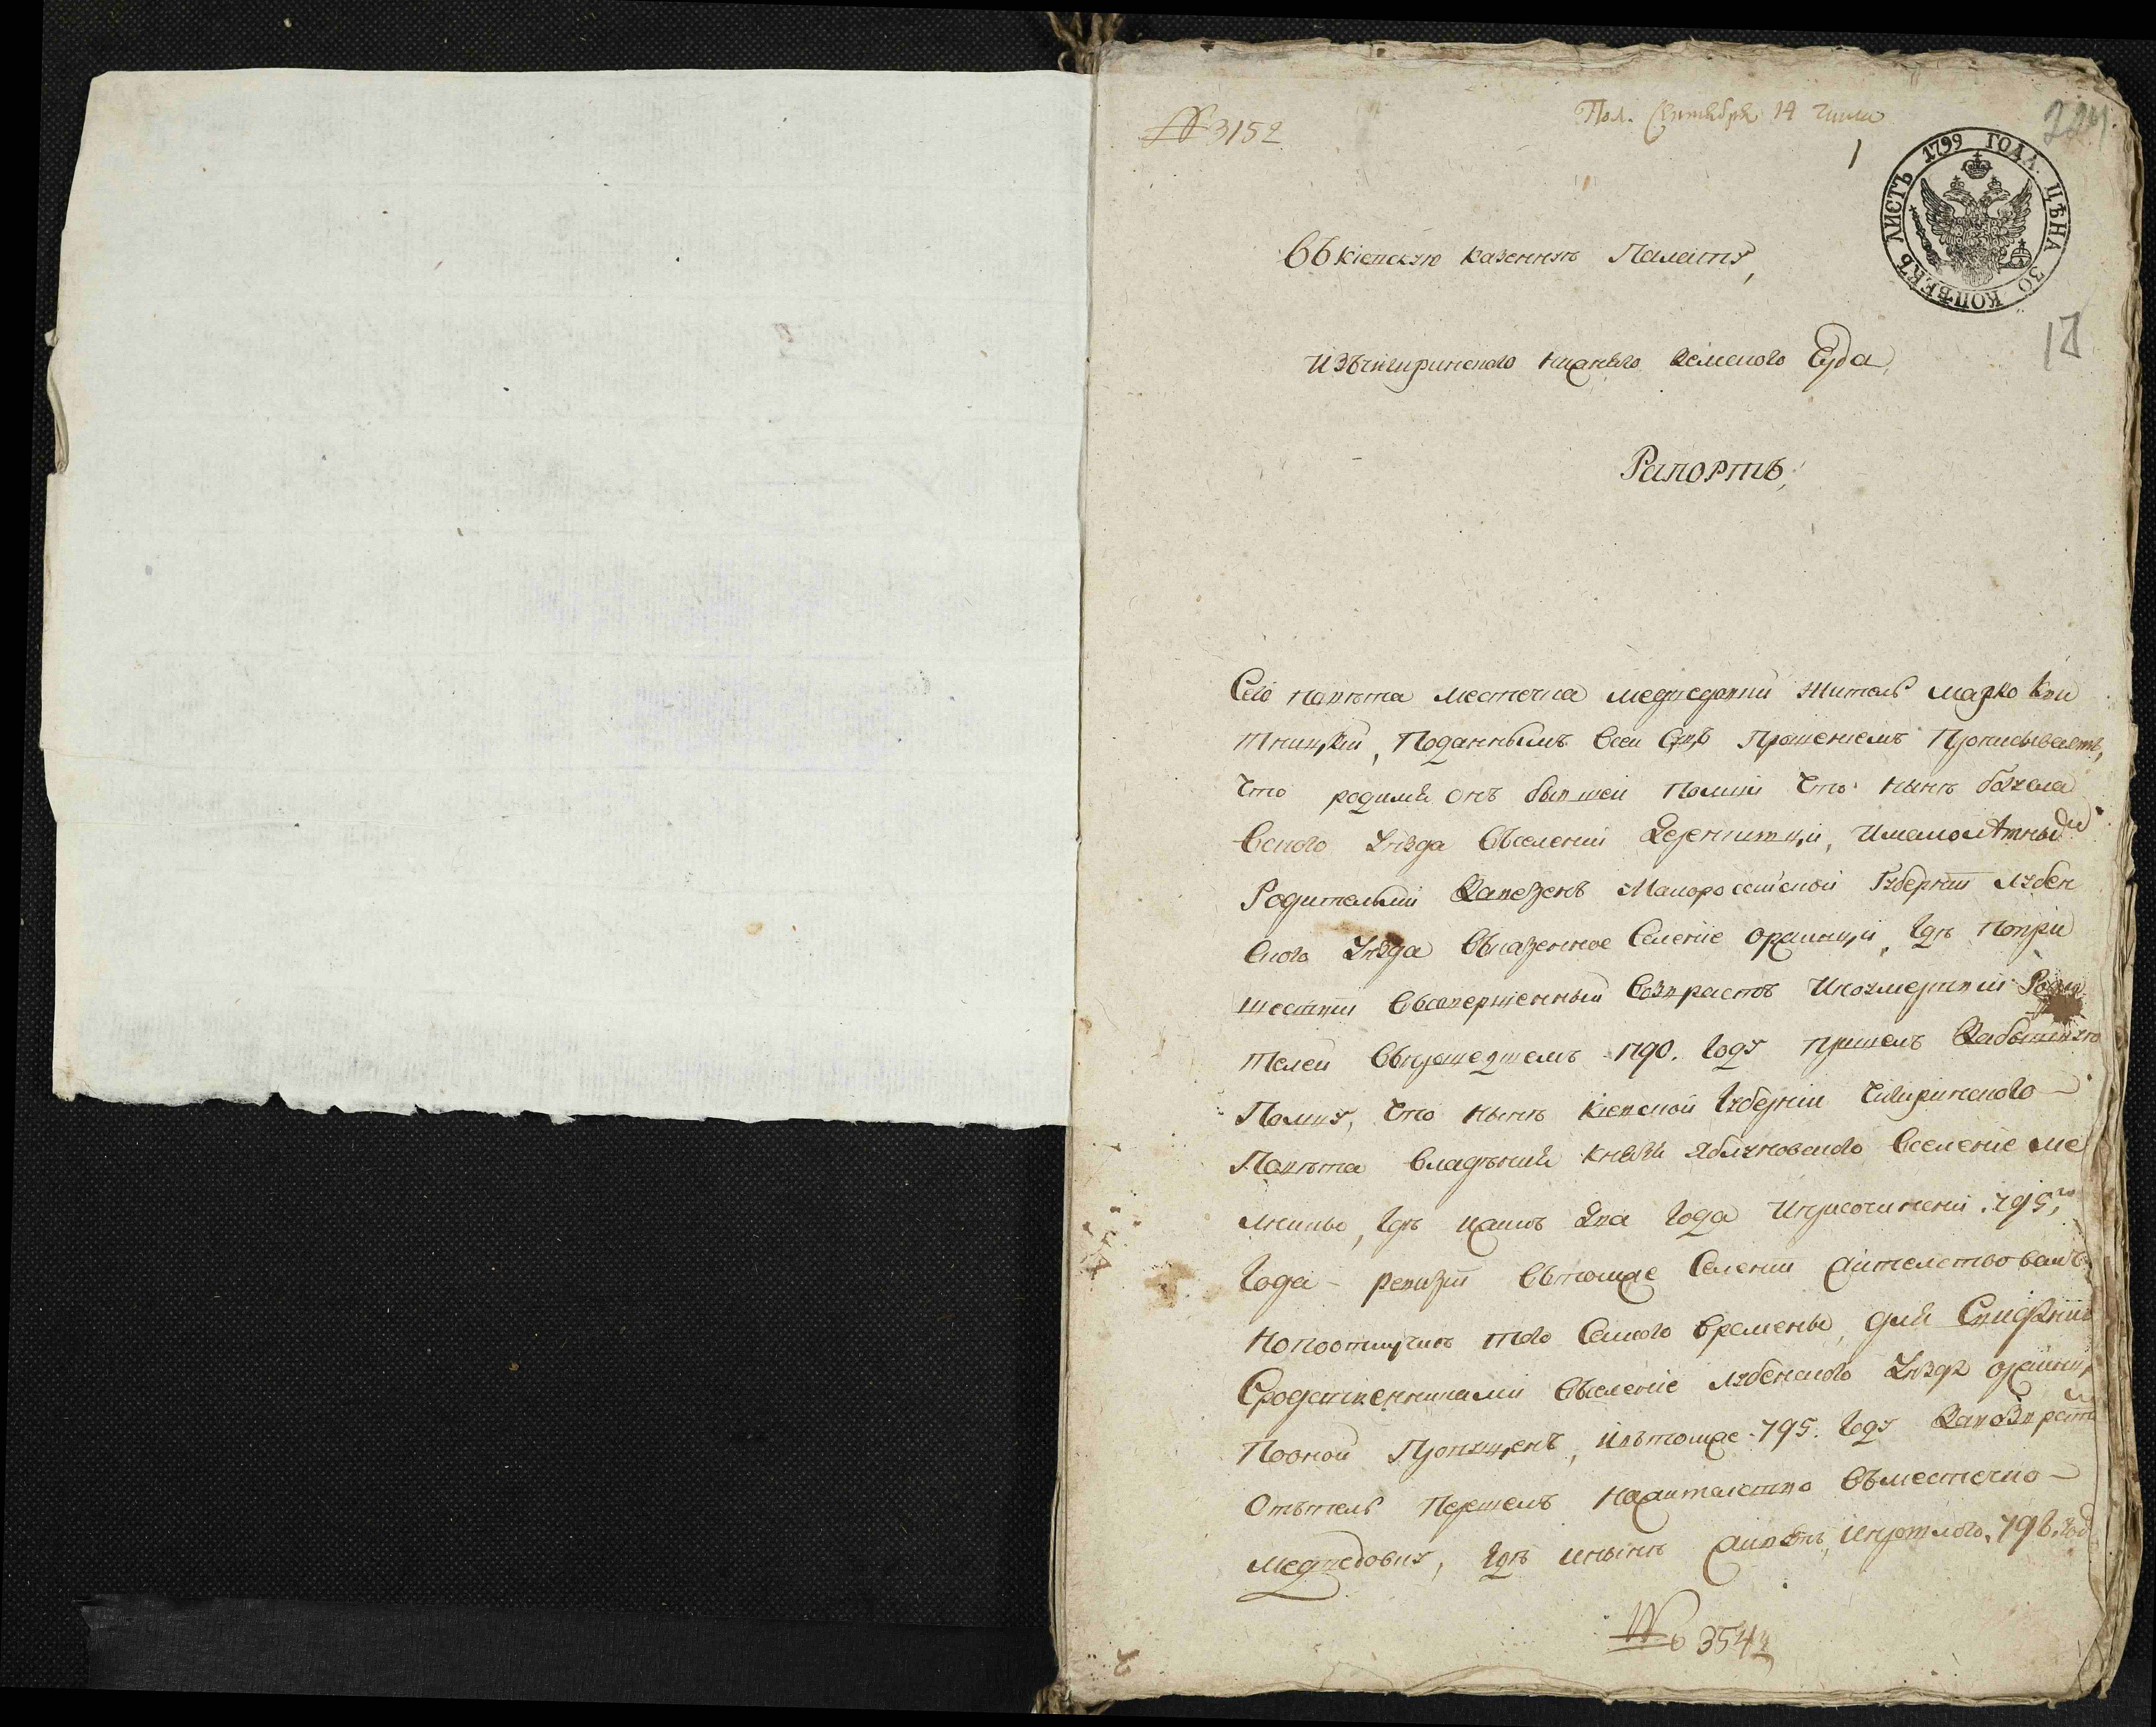 № 3152
Пол. Сентября 14 числа
224
1
ЛИСТЪ 1799 ГОДА. ЦѢНА 30 КОПѢЕКЪ
Въ киевскую казенную Палату,
17
Изъ чигиринского нижнѣго земского Суда,
Рапортъ,
Сего повѣта местечка медведовки житель марко
тницкий, Поданнымъ всей Судъ Прошениемъ Прописываетъ,
Что родился онъ бывшей Полши что нынѣ богусла
вского уѣзда въселении, ималолѣтныи
Родительми завезенъ Малороссийской Губернии лубен
ского уѣзда въказенное Селение оржицы, гдѣ попри
шествии въсовершенный возврастъ ипосмертии Роди
телей въпрошедшемъ 1790. году пришелъ Забывшую
Полшу, что нынѣ киевской губернии Чигиринского
Повѣта владѣния князя Яблоновского вселение ме
лники, гдѣ два года иприсочинении 795,го
года ревизии вътомже Селении жителствовалъ
Но того Самого времены, для Свиданія
Сродственниками въселение лубенского уѣзда оржицу
Поонои Пропущенъ, ивътомже 795. году
Отътель Перешелъ нажителство въместечко
медведовку, гдѣ инынѣ живетъ, ипрошлого, 798. год
№ 3544